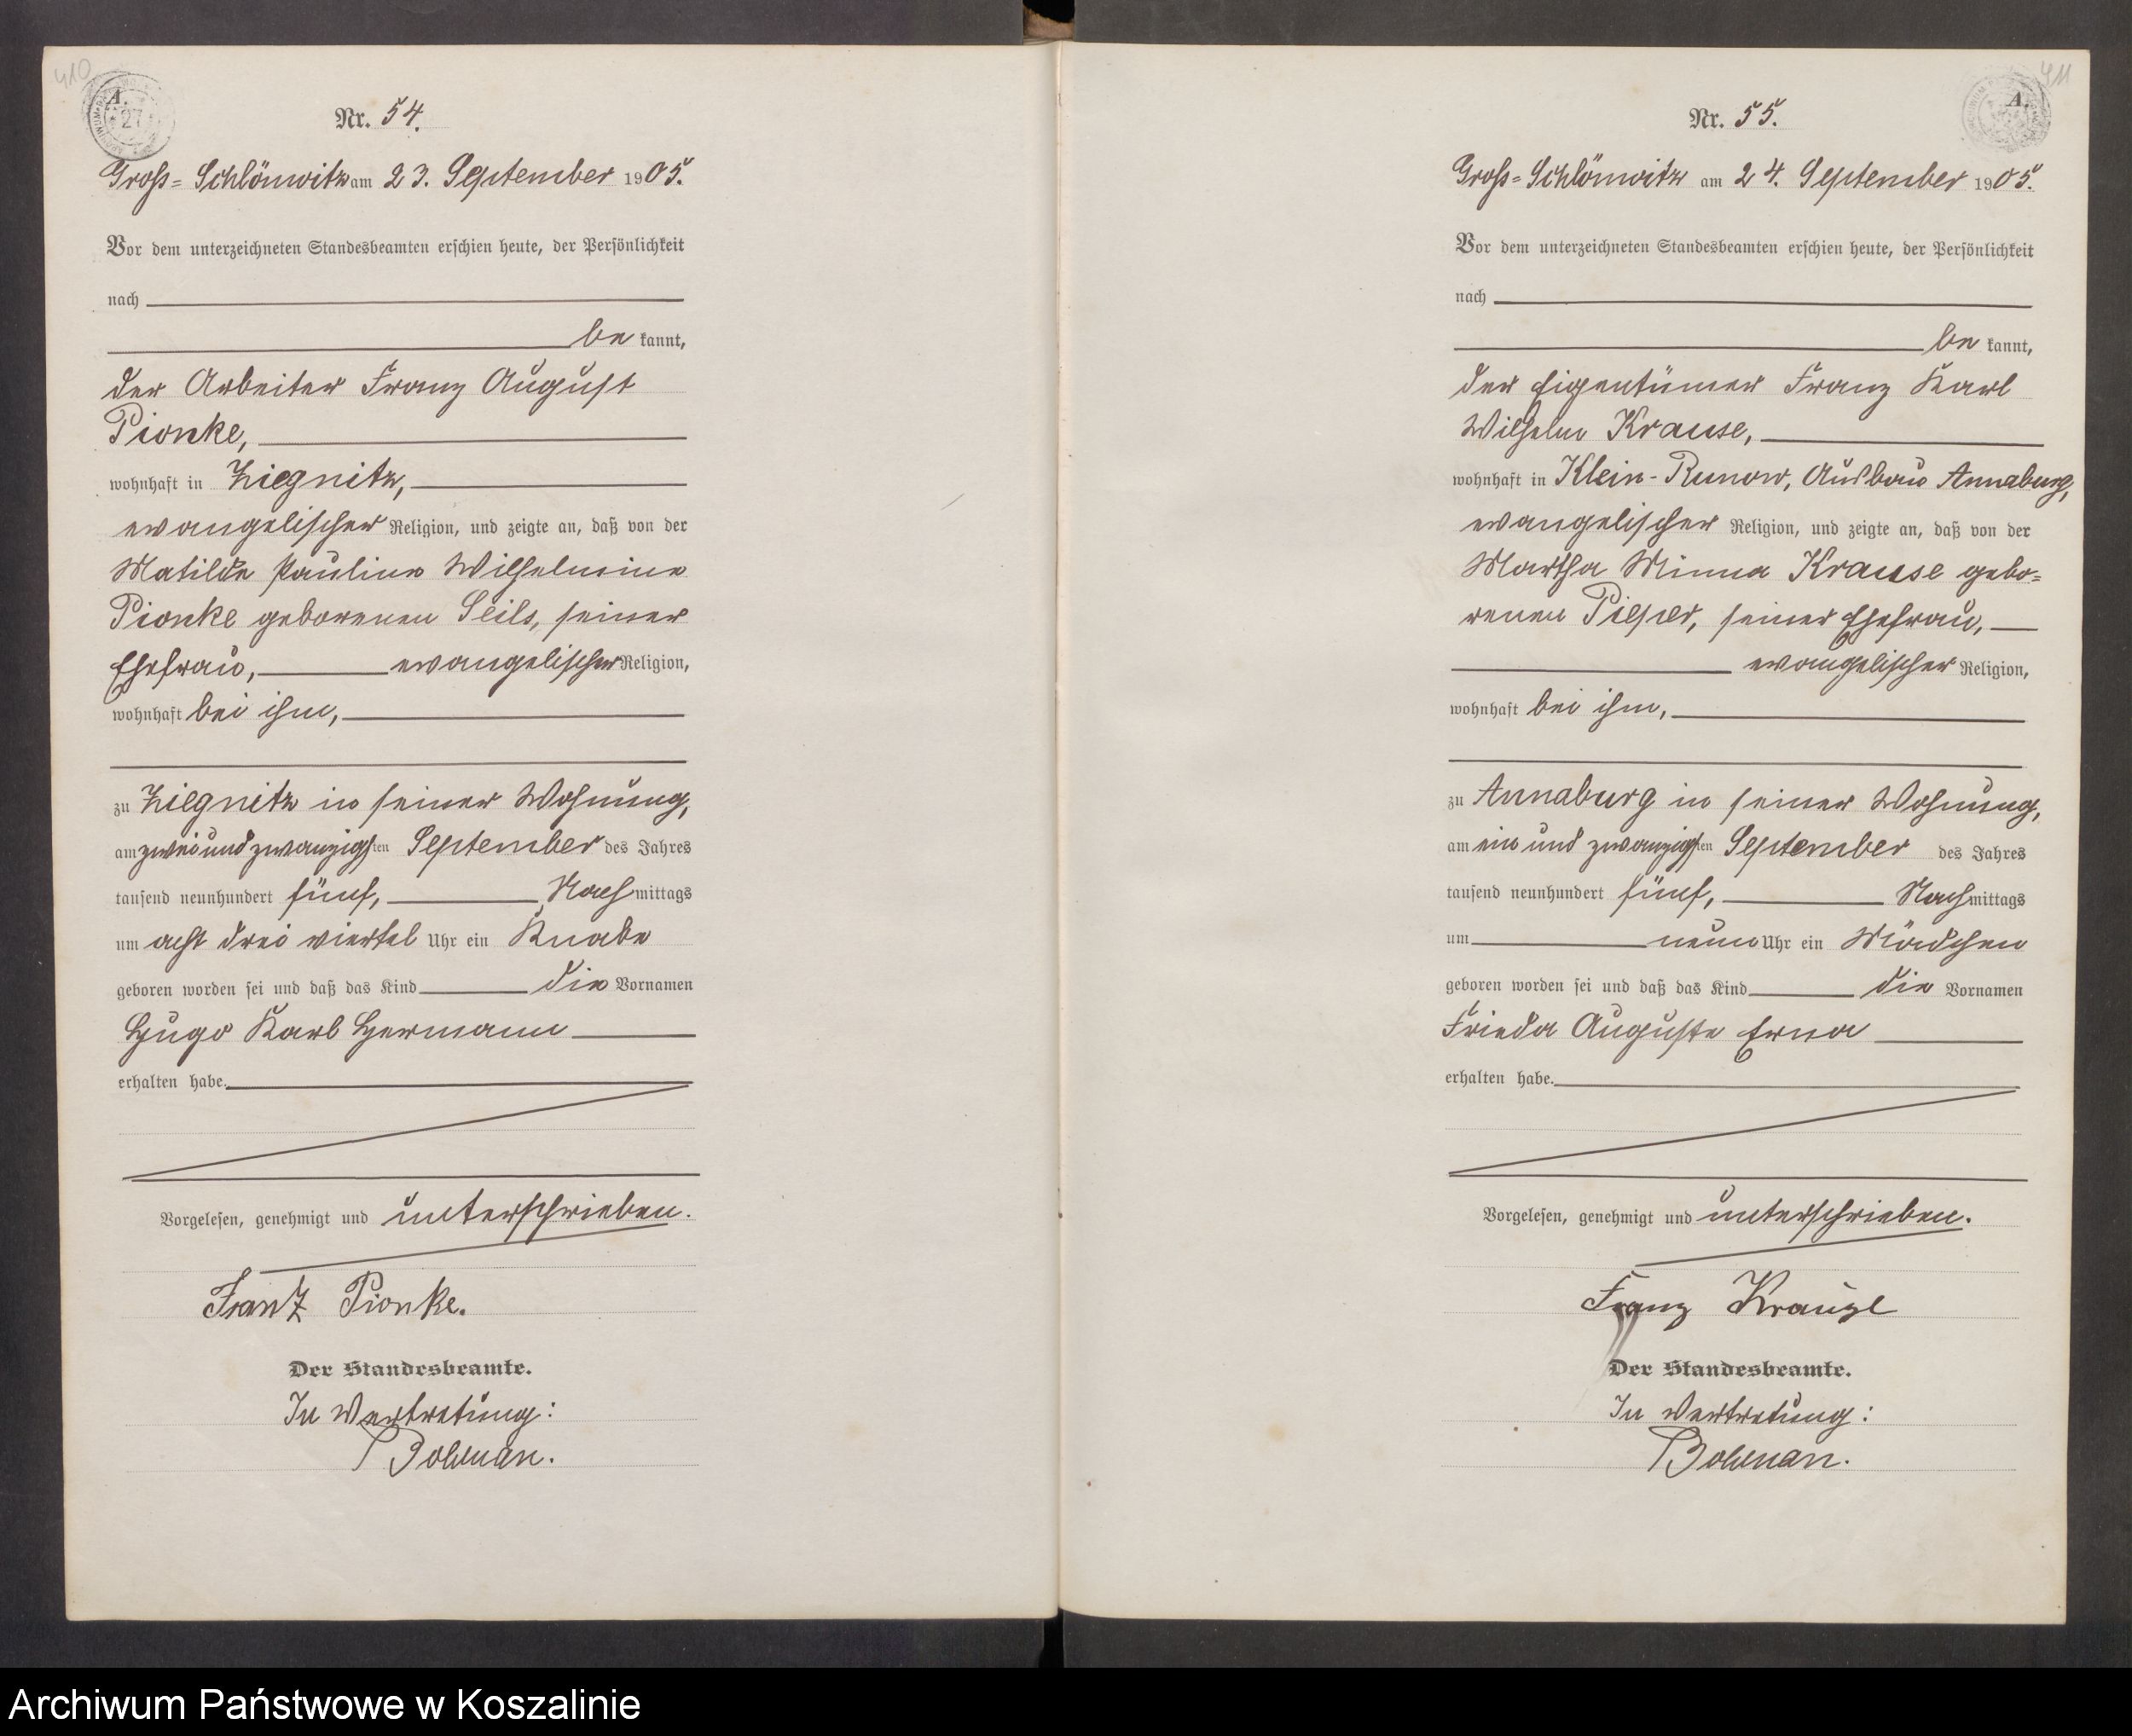 410
A.
27
Nr. 54.
Groß=Schlönwitz am 23. September 1905.
Vor dem unterzeichneten Standesbeamten erschien heute, der Persönlichkeit
nach
be kannt,
der Arbeiter Franz August
Pionke,
wohnhaft in Ziegnitz,
evangelischer Religion, und zeigte an, daß von der
Matilde Pauline Wilhelmine
Pionke geborenen Seils, seiner
Ehefrau, evangelischer Religion,
wohnhaft bei ihm,
zu Ziegnitz in seiner Wohnung,
am zwei und zwanzigsten September des Jahres
tausend neunhundert fünf, Nachmittags
um acht drei viertel Uhr ein Knabe
geboren worden sei und daß das Kind die Vornamen
Hugo Karl Hermann
erhalten habe.
Vorgelesen, genehmigt und unterschrieben.
Franz Pionke.
Der Standesbeamte.
In Vertretung:
411
A.
Nr. 55.
Groß=Schlönwitz am 24. September 1905.
Vor dem unterzeichneten Standesbeamten erschien heute, der Persönlichkeit
nach
be kannt,
der Eigentümer Franz Karl
Wilhelm Krause,
wohnhaft in Klein-Runow, Ausbau Annaburg,
evangelischer Religion, und zeigte an, daß von der
Martha Minna Krause gebo=
renen Pieper, seiner Ehefrau,
evangelischer Religion,
wohnhaft bei ihm,
zu Annaburg in seiner Wohnung,
am ein und zwanzigsten September des Jahres
tausend neunhundert fünf, Nachmittags
um neun Uhr ein Mädchen
geboren worden sei und daß das Kind die Vornamen
Frieda Auguste Erna
erhalten habe.
Vorgelesen, genehmigt und unterschrieben.
Franz Krause
Der Standesbeamte.
In Vertretung:
Archiwum Państwowe w Koszalinie